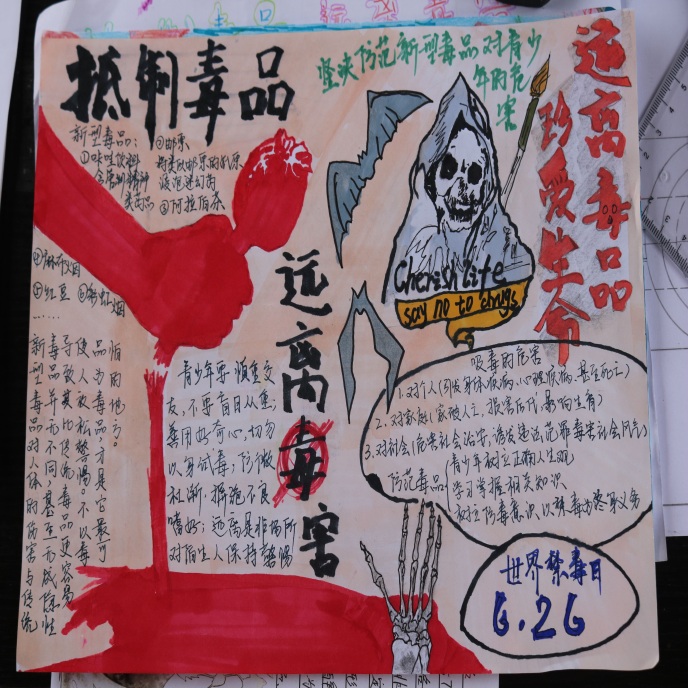 抵制毒品
坚决防范新型毒品对青少
年的危
害
远离毒品
珍爱生命
新型毒品:
①咔哇饮料
含席汀精神
类药品
②邮票
将类似邮票的
该泡迷幻药
③阿拉伯茶
④麻_烟
⑤红豆 ⑥彩虹烟
……
Cherish life
say no to drugs
远离毒害
新型毒品对人体的伤害与传统
毒品并不同,甚至而成瘾性
导致其比传统毒品更容易
使人放松警惕。不以毒
品为毒品,才是它最可
怕的地方。
青少年要慎重交
友,不要盲目从众;
善用好奇心,切勿
以身试毒;防微
杜渐,摒弃不良
嗜好;远离是非场所
对陌生人保持警惕
吸毒的危害
1.对个人(引发身体疾病,心理疾病,甚至死亡)
2.对家庭(家破人亡,损害后代,影响生育)
3.对社会(危害社会治安,诱发违法犯罪毒害社会风气)
防范毒品
青少年树立正确人生观
学习掌握相关知识
树立防毒意识,以禁毒为己任义务
世界禁毒日
6.26